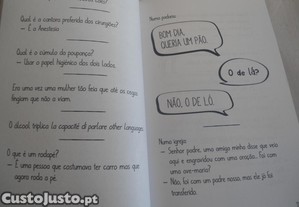 Qual é a cantora preferida dos cirurgiões?
— É a Anestesia.
Qual é o cúmulo da poupança?
— Usar o papel higiénico dos dois lados.
Era uma vez uma mulher tão feia que até os cegos
fingiam que não a viam.
O álcool triplica la capacité di parlare other languages.
O que é um rodapé?
— É uma pessoa que costumava ter carro mas que
agora roda a pé.
Numa padaria:
BOM DIA,
QUERIA UM PÃO.
O de Ló?
NÃO, O DE CÁ.
Numa igreja:
— Senhor padre, uma amiga minha disse que veio
aqui e engravidou com uma oração. Foi com
uma ave-maria?
— Não, foi com um padre nosso, mas ele já foi
transferido.
CustoJusto.pt